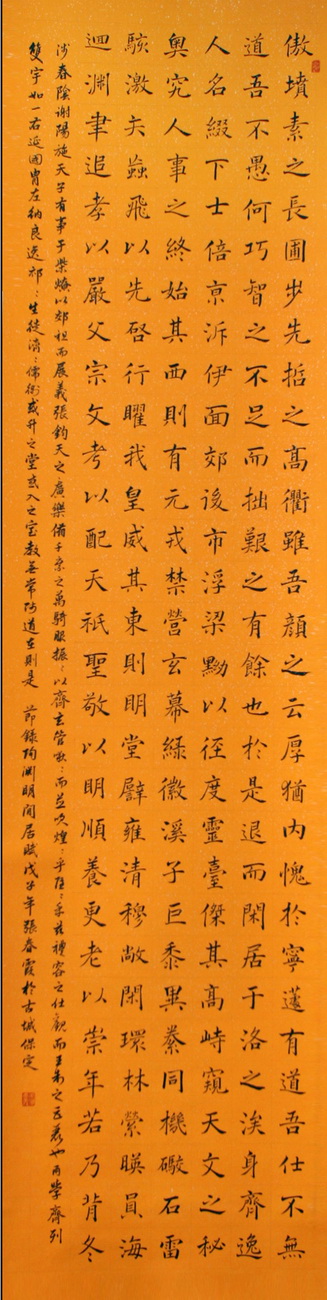 傲墳素之長圃步先哲之高衢雖吾顏之云厚猶內愧於寧蘧有道吾仕不無
道吾不愚何巧智之不足而拙艱之有餘也於是退而閑居于洛之涘身齊逸
人名綴下士倍京泝伊面郊後市浮梁黝以徑度靈臺傑其高峙窺天文之秘
奧究人事之終始其西則有元戎禁營玄幕綠徽溪子巨黍異絭同機礮石雷
駭激矢蝱飛以先啓行曜我皇威其東則明堂辟雍清穆敞閑環林縈暎員海
迴淵聿追孝以嚴父宗文考以配天祇聖敬以明順養更老以崇年若乃背冬
涉春陰謝陽施天子有事于柴燎以郊祖而展義張鈞天之廣樂備千乘之萬騎服振：以齊玄管啾：而並吹煌：乎隱：乎茲禮容之壯觀而王制之巨麗也兩學齊列
雙宇如一右延國胄左納良逸祁：生徒濟：儒術或升之堂或入之室教無常師道在則是 節錄陶淵明閑居賦戊子年張春霞於古城保定